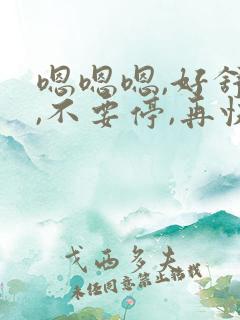 嗯嗯嗯,好舒
,不要停,再快
戈西多夫
未经同意禁止转载